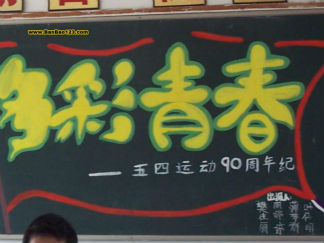 www.banbao123.com
多彩青春
—— 五四运动90周年纪
出版人